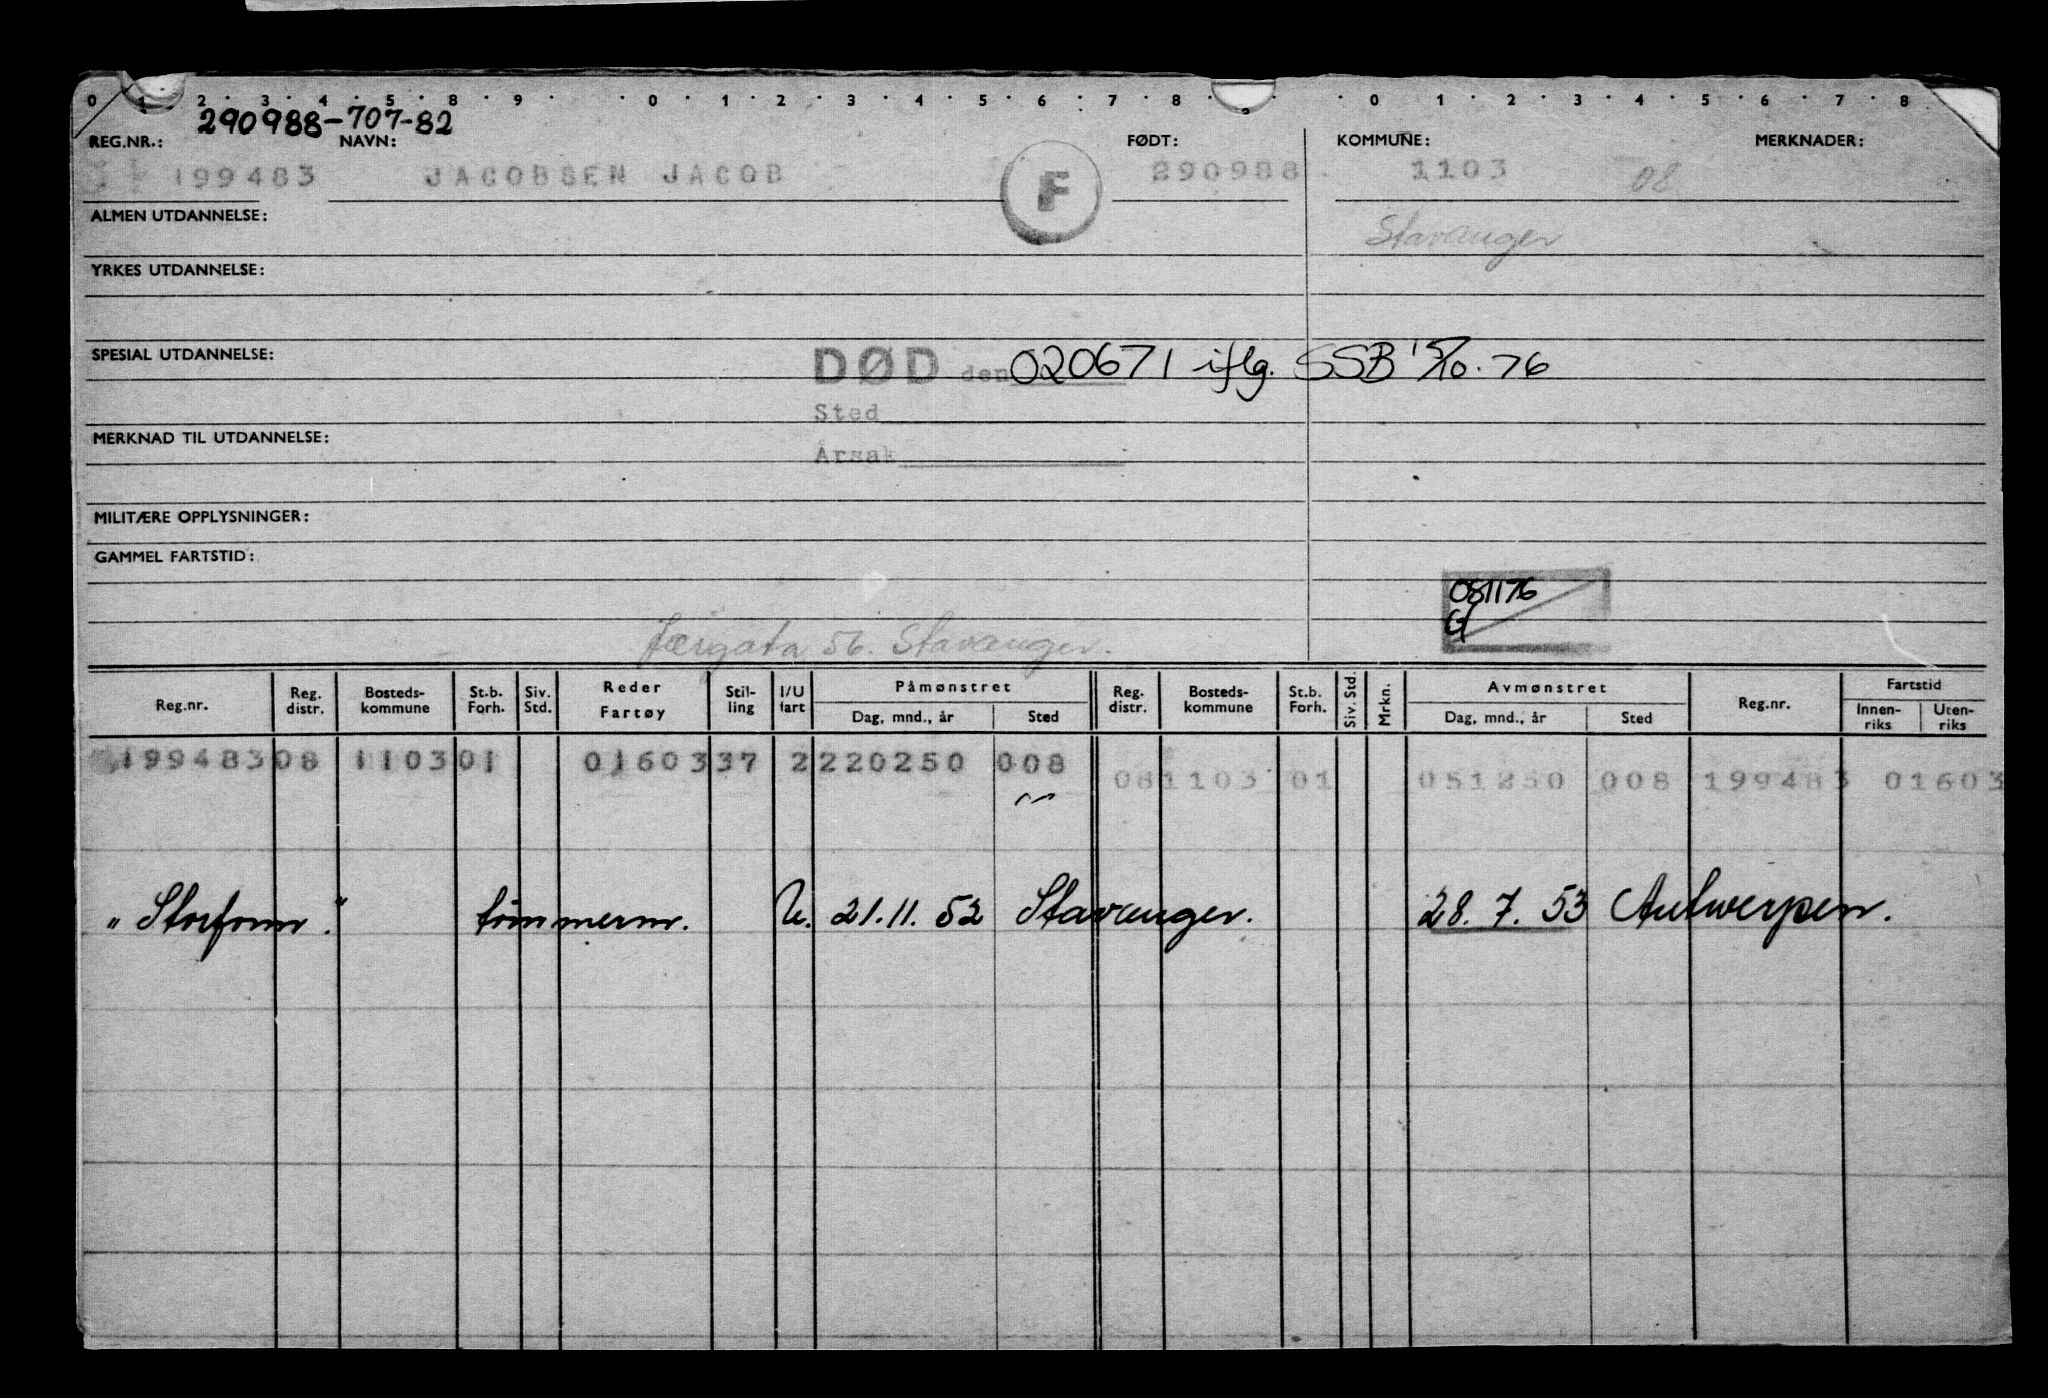 0 1 2 3 4 5 8 9 0 1 2 3 4 5 6 7 8 9 0 1 2 3 4 5 6 7 8
290988-707-82
REG.NR.: NAVN: FØDT: KOMMUNE: MERKNADER:
199483 JACOBSEN JACOB F 290988 1103 08
ALMEN UTDANNELSE:
Stavanger
YRKES UTDANNELSE:
SPESIAL UTDANNELSE:
DØD den 020671 iflg. SSB 15/10.76
Sted
MERKNAD TIL UTDANNELSE:
Årsak
MILITÆRE OPPLYSNINGER:
GAMMEL FARTSTID:
081176
G
Jærgata 56. Stavanger.
Reg.nr. Reg. distr. Bosteds-kommune St.b. Forh. Siv. Std. Reder Fartøy Stil-ling I/U fart Påmønstret Dag, mnd., år Sted Reg. distr. Bosteds-kommune St.b. Forh. Siv. Std. Mrkn. Avmønstret Dag, mnd., år Sted Reg.nr. Fartstid Innen-riks Uten-riks
199483 08 1103 01 01603 37 2 220250 008
08 1103 01 051250 008 199483 01603
"Storfonn." tømmerm. U. 21.11.52 Stavanger. 28.7.53 Antwerpen.